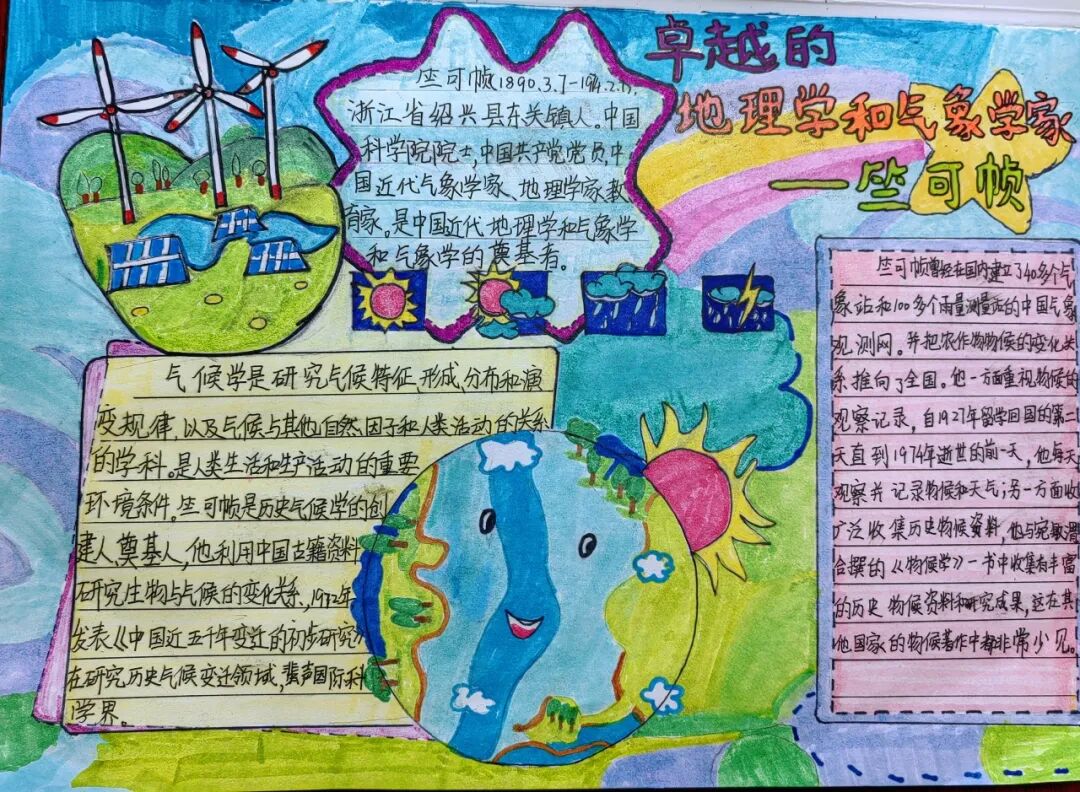 卓越的
地理学和气象学家
—竺可帧
竺可帧1890.3.7-1974.2.7.
浙江省绍兴县东关镇人。中国
科学院院士,中国共产党党员,中
国近代气象学家、地理学家教
育家。是中国近代地理学和气象学
和气象学的奠基者。
气候学是研究气候特征,形成,分布和演
变规律,以及气候与其他自然因子和人类活动的关系
的学科。是人类生活和生产活动的重要
环境条件。竺可帧是历史气候学的创
建人、奠基人,他利用中国古籍资料
研究生物与气候的变化关系,1972年
发表《中国近五千年变迁的初步研究》
在研究历史气候变迁领域,蜚声国际科
学界。
竺可帧曾经在国内建立了40多个气
象站和100多个雨量测量站的中国气象
观测网。并把农作物物候的变化关
系推向了全国。他一方面重视物候的
观察记录,自1927年留学回国的第一
天直到1974年逝世的前一天,他每天
观察并记录物候和天气;另一方面收
广泛收集历史物候资料,他与宛敏渭
合撰的《物候学》一书中收集有丰富
的历史物候资料和研究成果,这在其
他国家的物候著作中都非常少见。